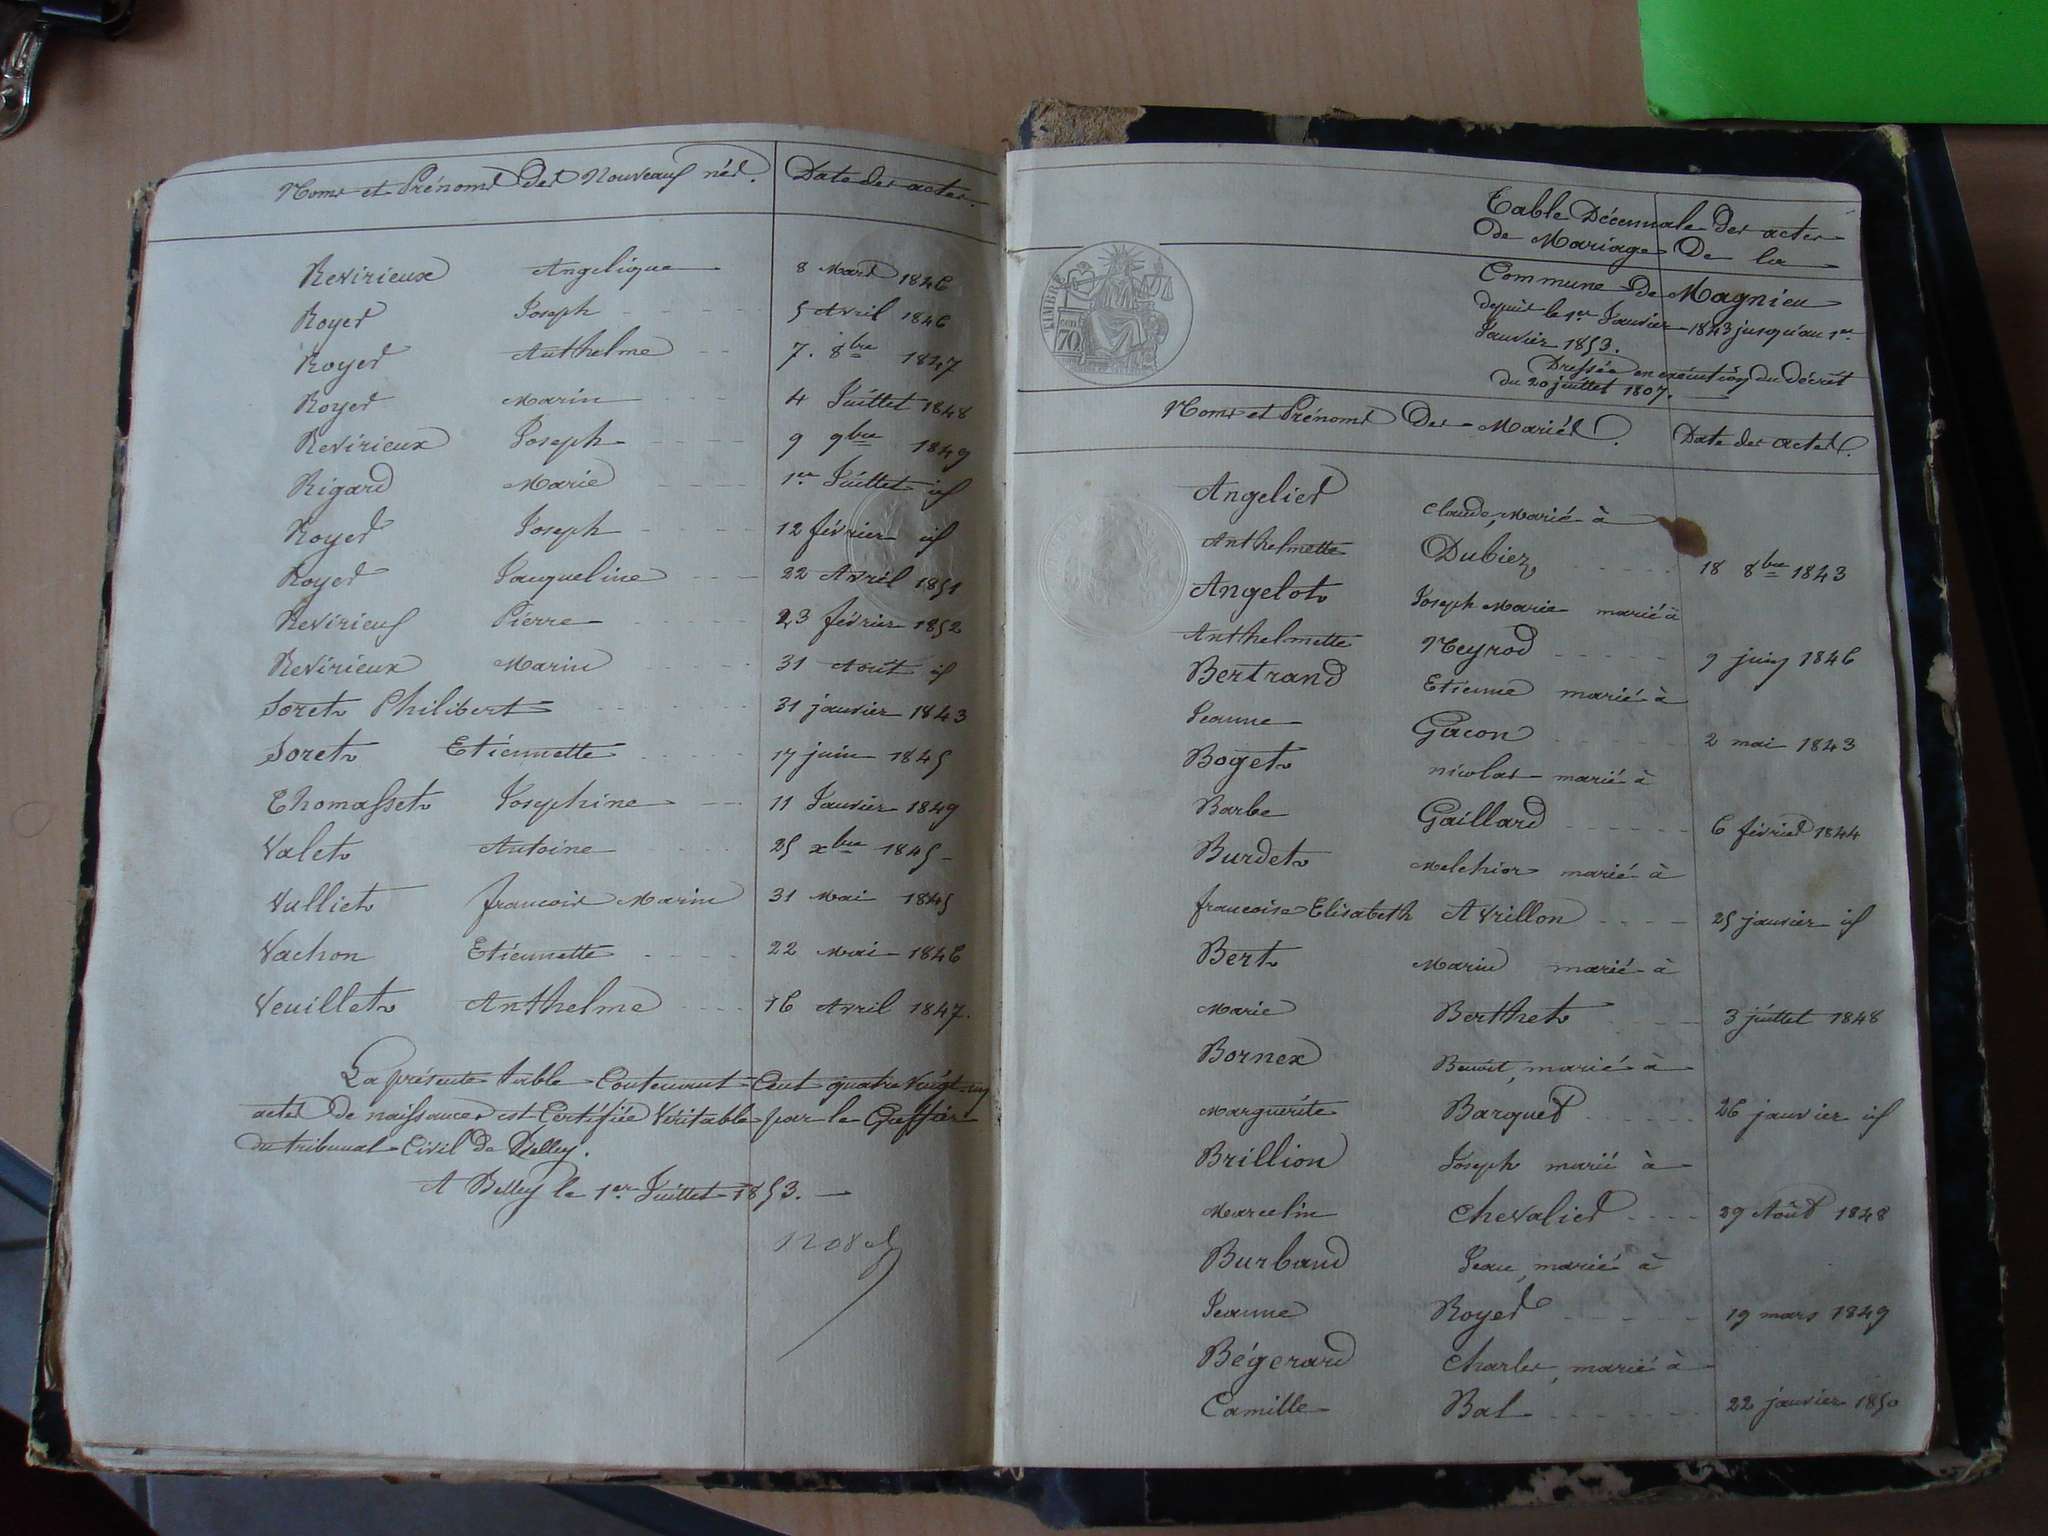 Noms et Prénoms Des Nouveaux nés. Date des actes.
Revirieux Angelique 8 Mars 1846
Royer Joseph 5 Avril 1846
Royer Anthelme 7. 8bre 1847
Royer Marin 4 Juillet 1848
Revirieux Joseph 9 9bre 1849
Rigard Marie 1er Juillet id
Royer Joseph 12 février id
Royer Jacqueline 22 Avril 1851
Revirieux Pierre 23 février 1852
Revirieux Marin 31 Août id
Soret Philibert 31 janvier 1843
Soret Etiennette 17 juin 1845
Thomasset Josephine 11 Janvier 1849
Valet Antoine 25 xbre 1845
Vulliet francois Marin 31 Mai 1845
Vachon Etiennette 22 Mai 1846
Veuillet Anthelme 16 Avril 1847.
La présente table Contenant Cent quatre Vingt un
actes De naissances est Certifiée Véritable par le Greffier
du tribunal Civil de Belley.
A Belley le 1er Juillet 1853.
Table Décennale Des actes
De Mariages De la
Commune de Magnieu
depuis le 1er Janvier 1843 jusqu'au 1er
Janvier 1853.
Dressée en exécution du décret
du 20 juillet 1807.
TIMBRE
70
Noms et Prénoms Des Mariés. Date des actes.
Angelier Claude, Marié à
Anthelmette Dubiez, 18 8bre 1843
Angelot Joseph Marie marié à
Anthelmette Neyrod 9 juin 1846
Bertrand Etienne marié à
Jeanne Gacon 2 mai 1843
Boget nicolas marié à
Barbe Gaillard 6 février 1844
Burdet Melchior marié à
francoise Elisabeth Avrillon 25 janvier id
Bert Marin marié à
Marie Berthet 3 juillet 1848
Bornex Benoit, marié à
Marguerite Barquet 26 janvier id
Brillion Joseph marié à
Marcelin Chevalier 29 Août 1848
Burbaud Jean, marié à
Jeanne Royer 19 mars 1849
Bégerard Charles, marié à
Camille Bal 22 janvier 1850